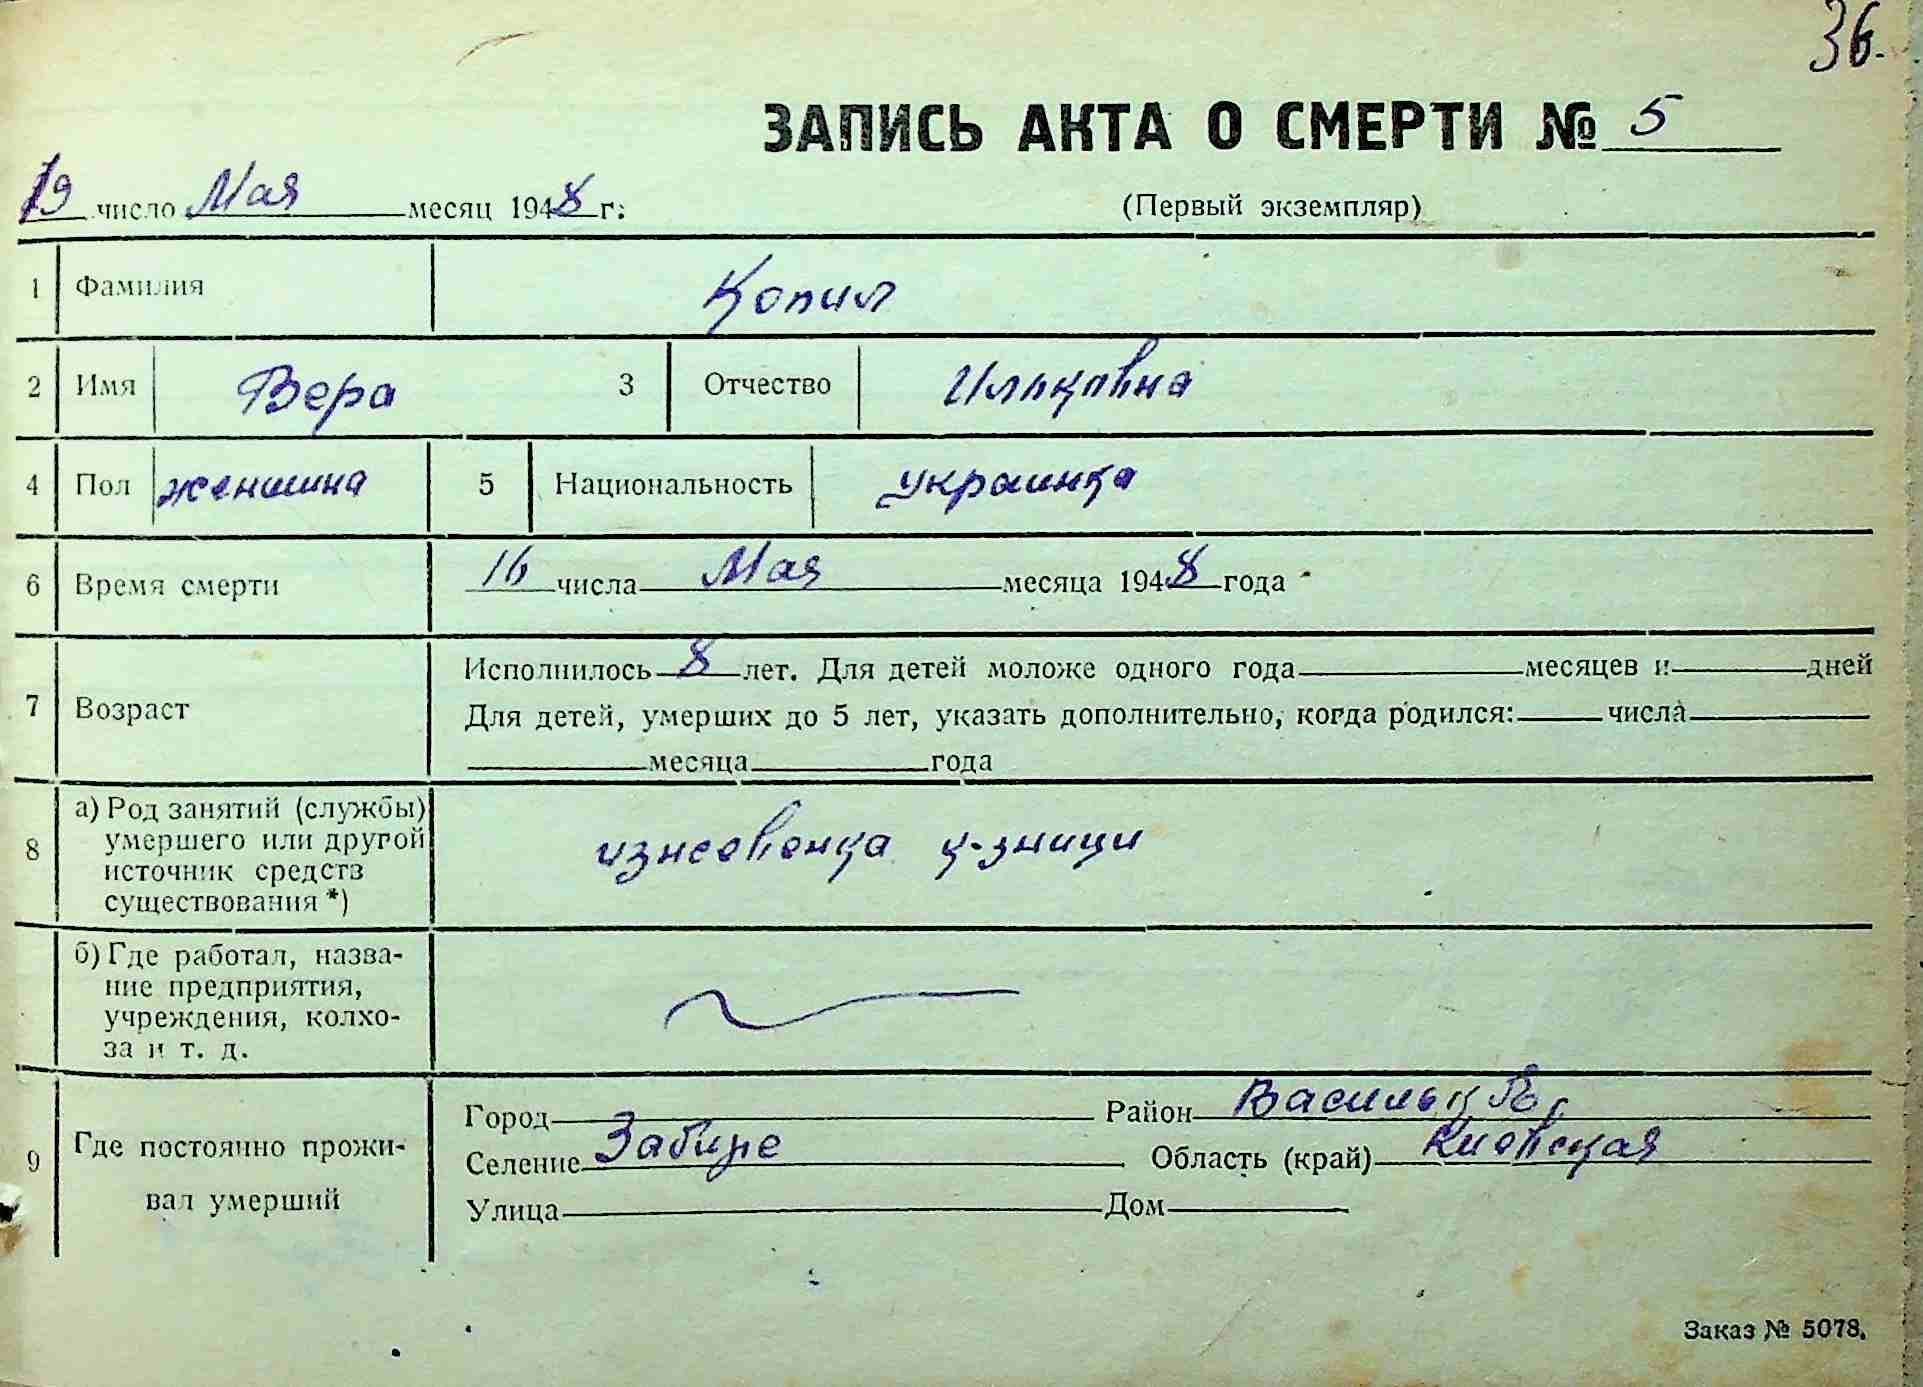 36.
ЗАПИСЬ АКТА О СМЕРТИ № 5
19 число Мая месяц 1948 г.
(Первый экземпляр)
1 Фамилия Копил
2 Имя Вера 3 Отчество Ильковна
4 Пол женшина 5 Национальность украинка
6 Время смерти 16 числа Мая месяца 1948 года
7 Возраст
Исполнилось 8 лет. Для детей моложе одного года месяцев и дней
Для детей, умерших до 5 лет, указать дополнительно, когда родился: числа
месяца года
8 а) Род занятий (службы)
умершего или другой
источник средств
существования *)
ижневенка к-зници
б) Где работал, назва-
ние предприятия,
учреждения, колхо-
за и т. д.
9 Где постоянно прожи-
вал умерший
Город Район Васильков.
Селение Забире Область (край) Киевская
Улица Дом
Заказ № 5078.